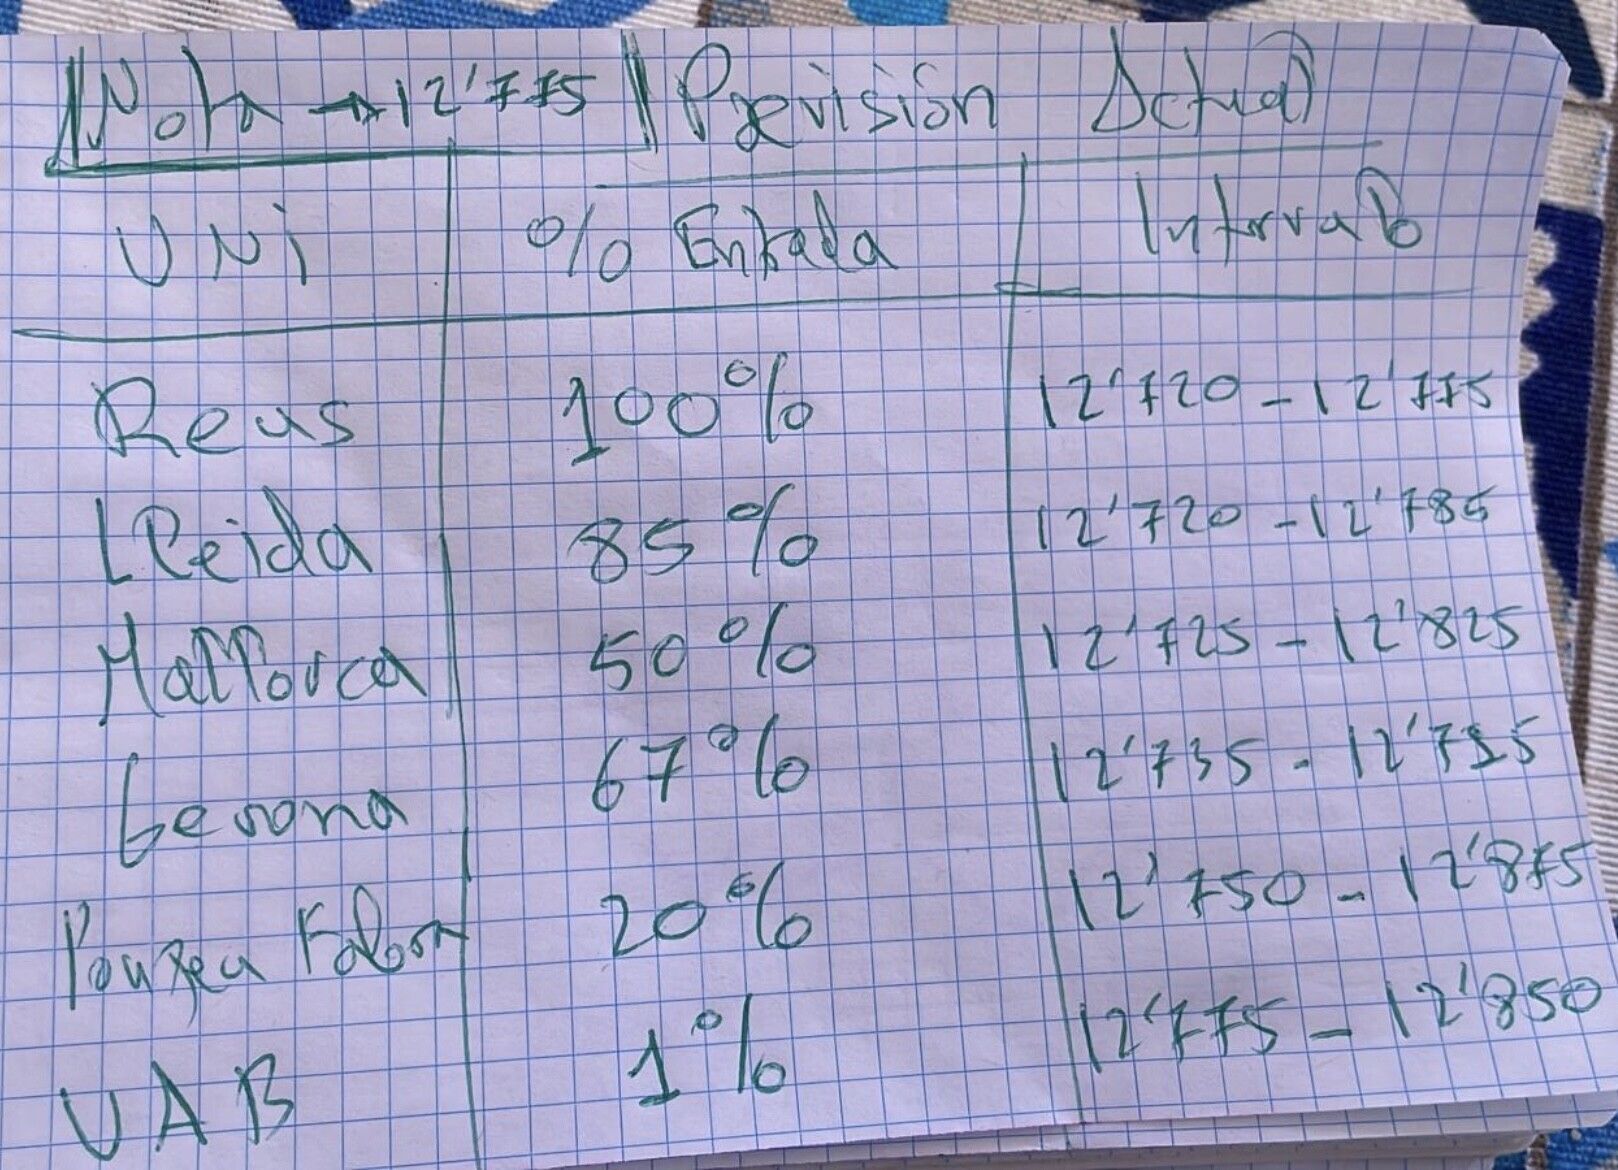 Nota → 12'775 Previsión Actual
UNi % Entrada Intervalo
Reus 100% 12'720 - 12'775
Lleida 85% 12'720 - 12'785
Mallorca 50% 12'725 - 12'825
Gerona 67% 12'735 -
Pompeu Fabra 20% 12'750 - 12'875
UAB 1% 12'775 - 12'850